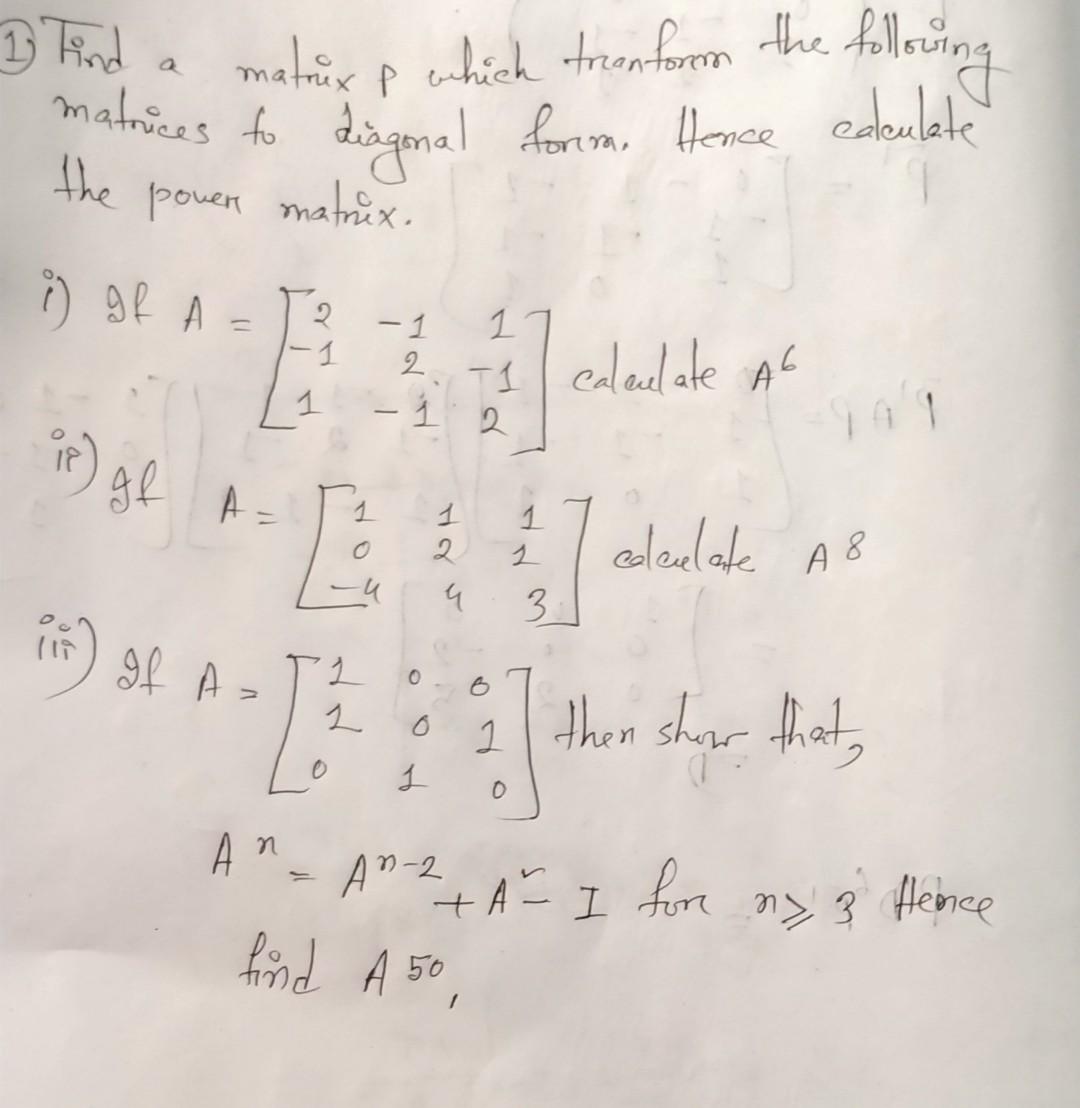 1) Find a matrix p which tranform the following
matrices to diagonal form. Hence calculate
the power matrix.
i) If A = [2 -1 1
-1 2 -1
1 -1 2] calculate A^6
ii) If A = [1 1 1
0 2 1
-4 4 3] calculate A^8
iii) If A = [1 0 0
1 0 1
0 1 0] then show that,
A^n = A^n-2 + A^2 - I for n ≥ 3 Hence
find A^50,